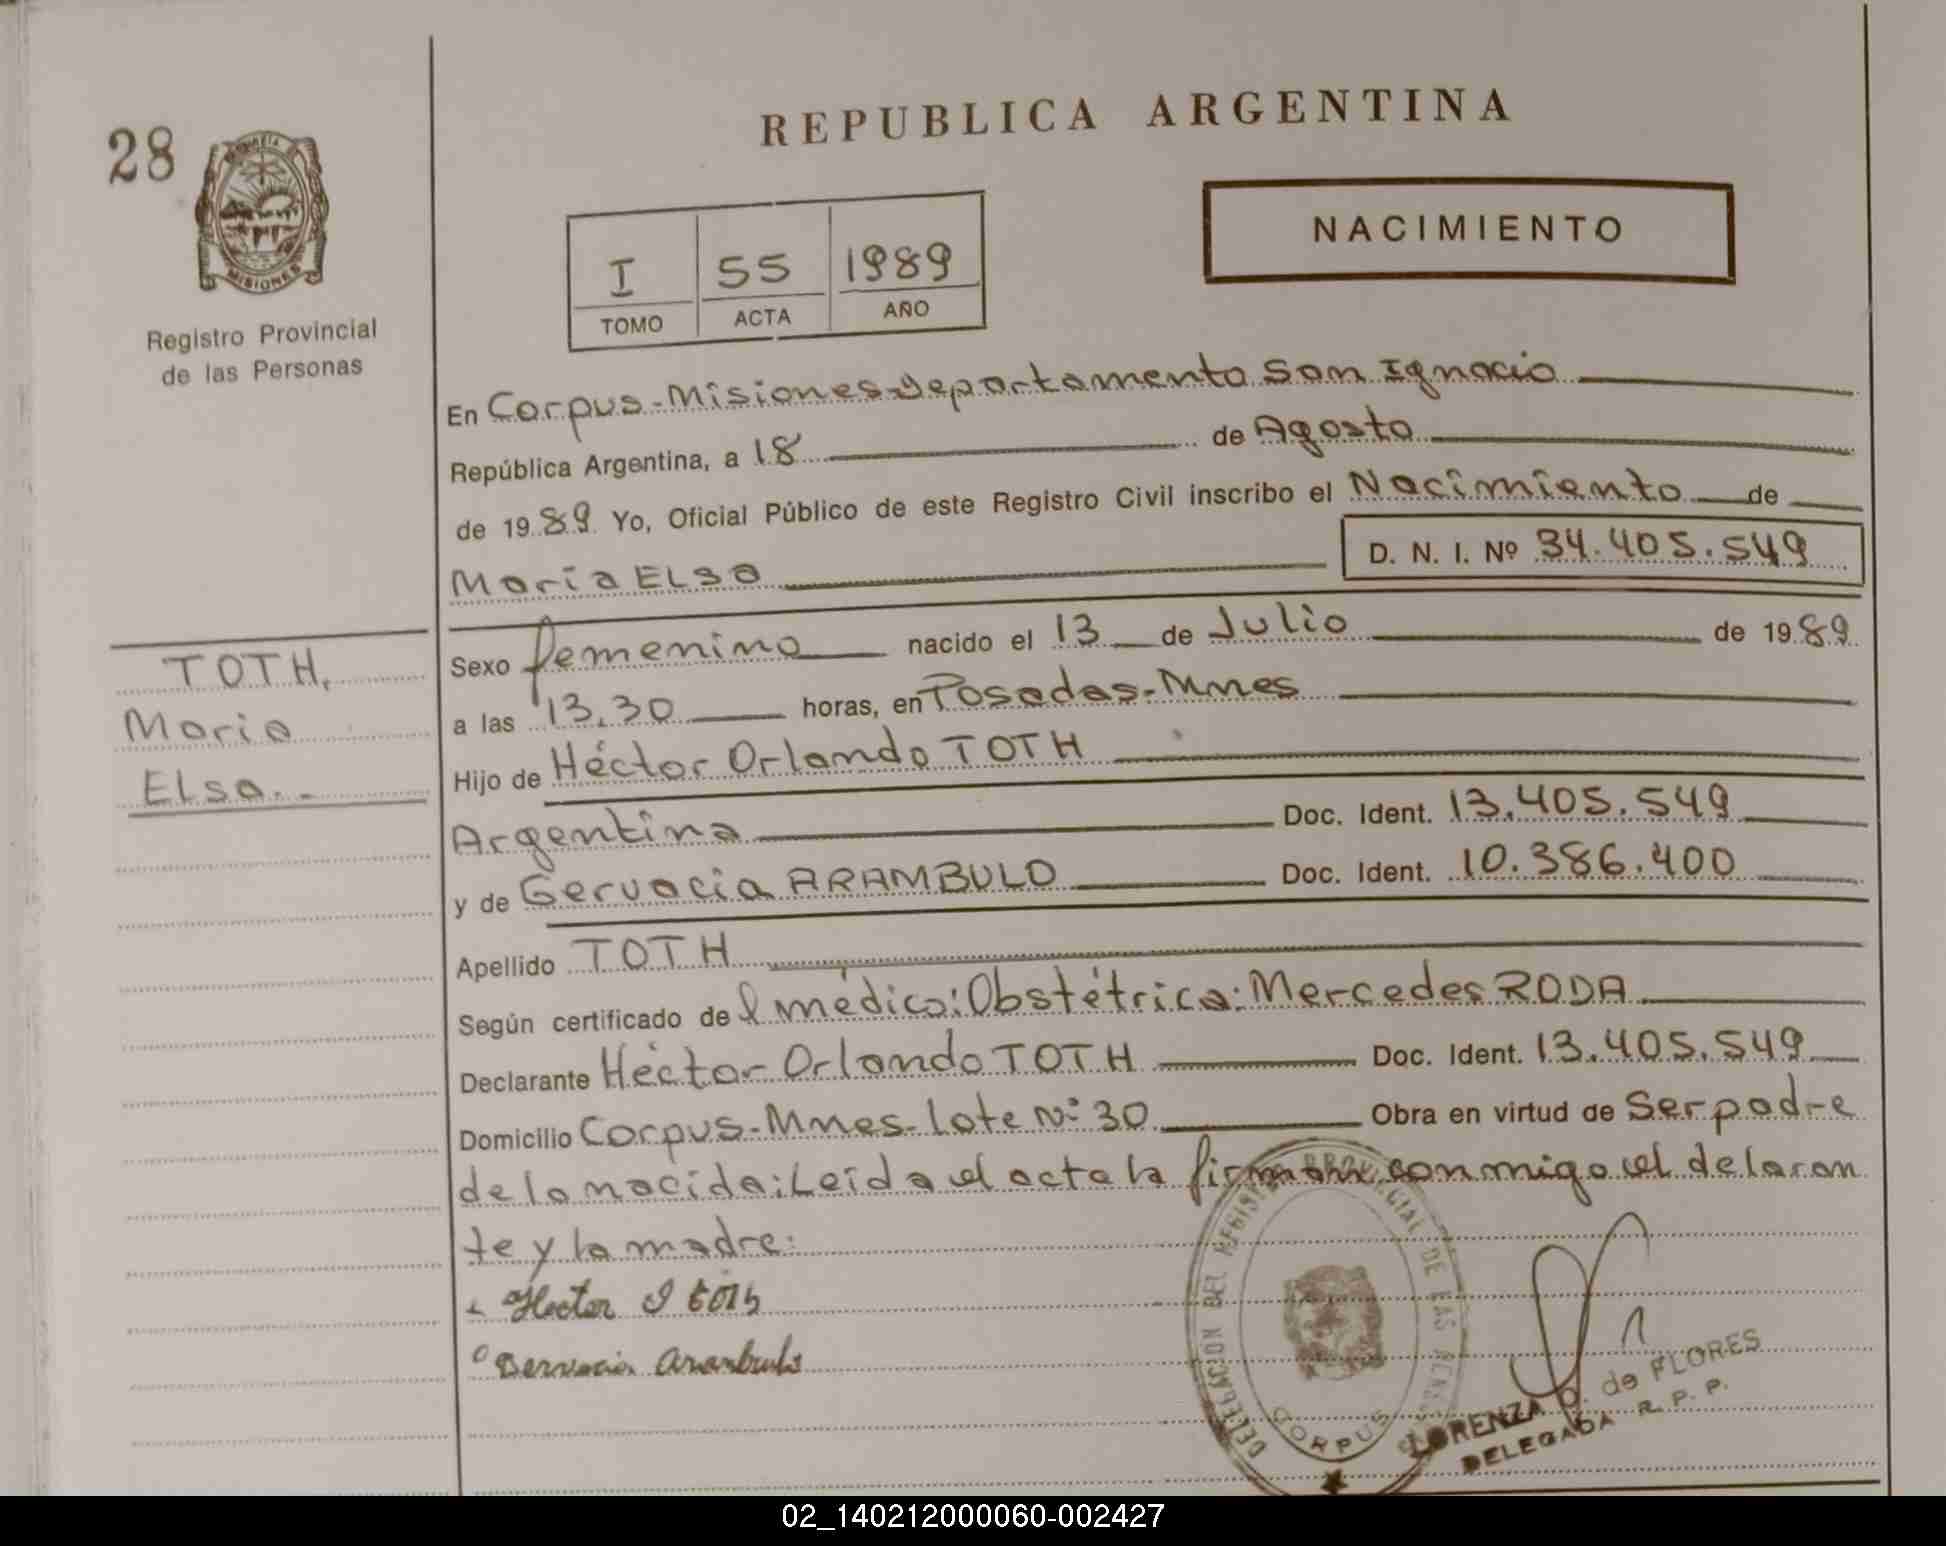 28
REPUBLICA ARGENTINA
MISIONES
Registro Provincial
de las Personas
I 55 1989
TOMO ACTA AÑO
NACIMIENTO
En Corpus-Misiones-departamento San Ignacio
República Argentina, a 18 de Agosto
de 1989 Yo, Oficial Público de este Registro Civil inscribo el Nacimiento de
María ELSA D. N. I. Nº 34.405.549
TOTH,
Maria
Elsa.-
Sexo femenino nacido el 13 de Julio de 1989
a las 13,30 horas, en Posadas-Mnes
Hijo de Héctor Orlando TOTH
Argentina Doc. Ident. 13.405.549
y de Gervacia ARAMBULO Doc. Ident. 10.386.400
Apellido TOTH
Según certificado del médico: Obstétrica: Mercedes RODA
Declarante Héctor Orlando TOTH Doc. Ident. 13.405.549
Domicilio Corpus-Mnes-Lote Nº 30 Obra en virtud de Ser padre
de la nacida: Leída el acta la firman conmigo el delaran
te y la madre:
Hector O toth
Gervacia Arambulo
DELEGACION DEL REGISTRO PROVINCIAL DE LAS
CORPUS
LORENZA D. de FLORES
DELEGADA R. P. P.
02_140212000060-002427